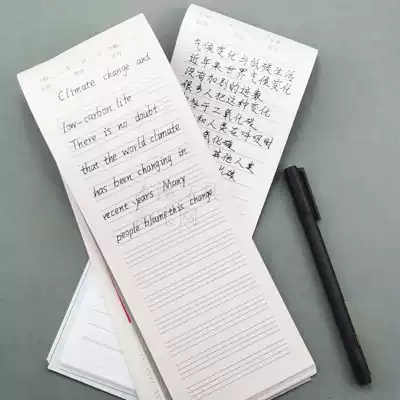 Climate change and
low-carbon life
There is no doubt
that the world climate
has been changing in
recent years. Many
people blame this change
气候变化与低碳生活
近年来世界气候变化
没有
很多人把这种变化
二氧化碳
和人类在呼吸时
氧化碳
其他人类